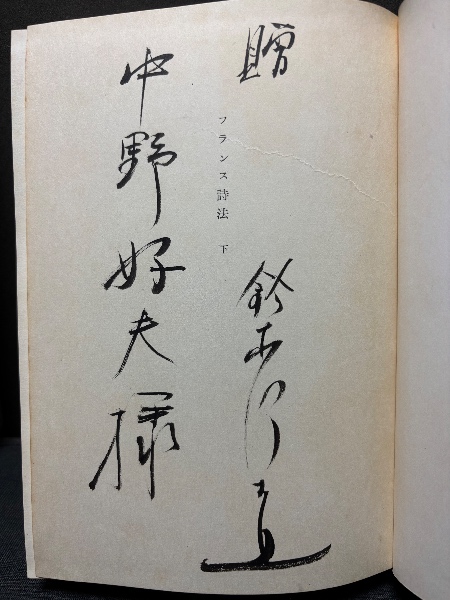 贈
鈴木信太郎
フランス詩法 下
中野好夫様